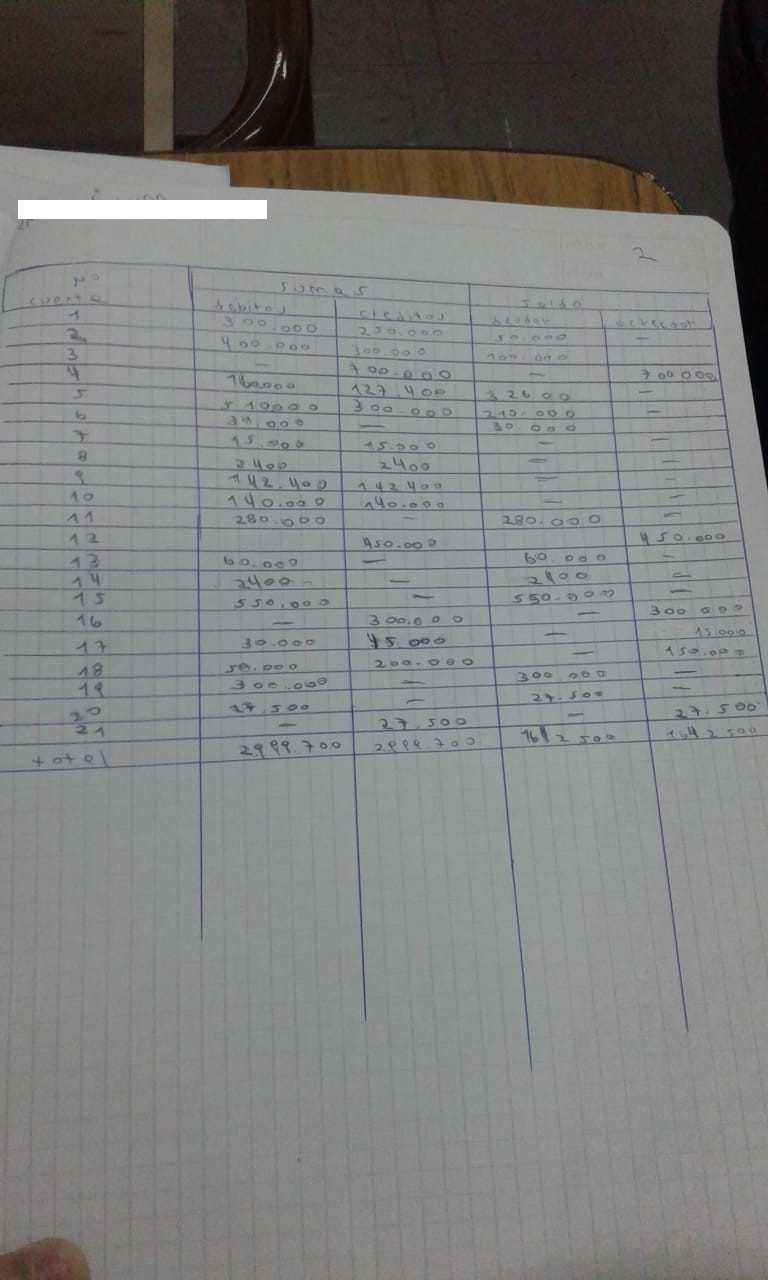 2
N° cuenta sumas saldo
debitos creditos deudor acreedor
1 300.000 250.000 50.000 —
2 400.000 300.000 100.000 —
3 — 700.000 — 700000
4 160000 127.400 32600 —
5 510000 300.000 210.000 —
6 30.000 — 30.000
7 15.000 15.000 — —
8 2400 2400 — —
9 142.400 142400 — —
10 140.000 140.000 — —
11 280.000 — 280.000 —
12 450.000 450.000
13 60.000 — 60.000 —
14 2400 — 2400 —
15 550.000 — 550.000 —
16 — 300.000 — 300000
17 30.000 45.000 — 15.000
18 50.000 200.000 — 150.000
19 300.000 — 300.000 —
20 27.500 — 27.500 —
21 — 27.500 — 27.500
total 2999.700 2999.700 1642500